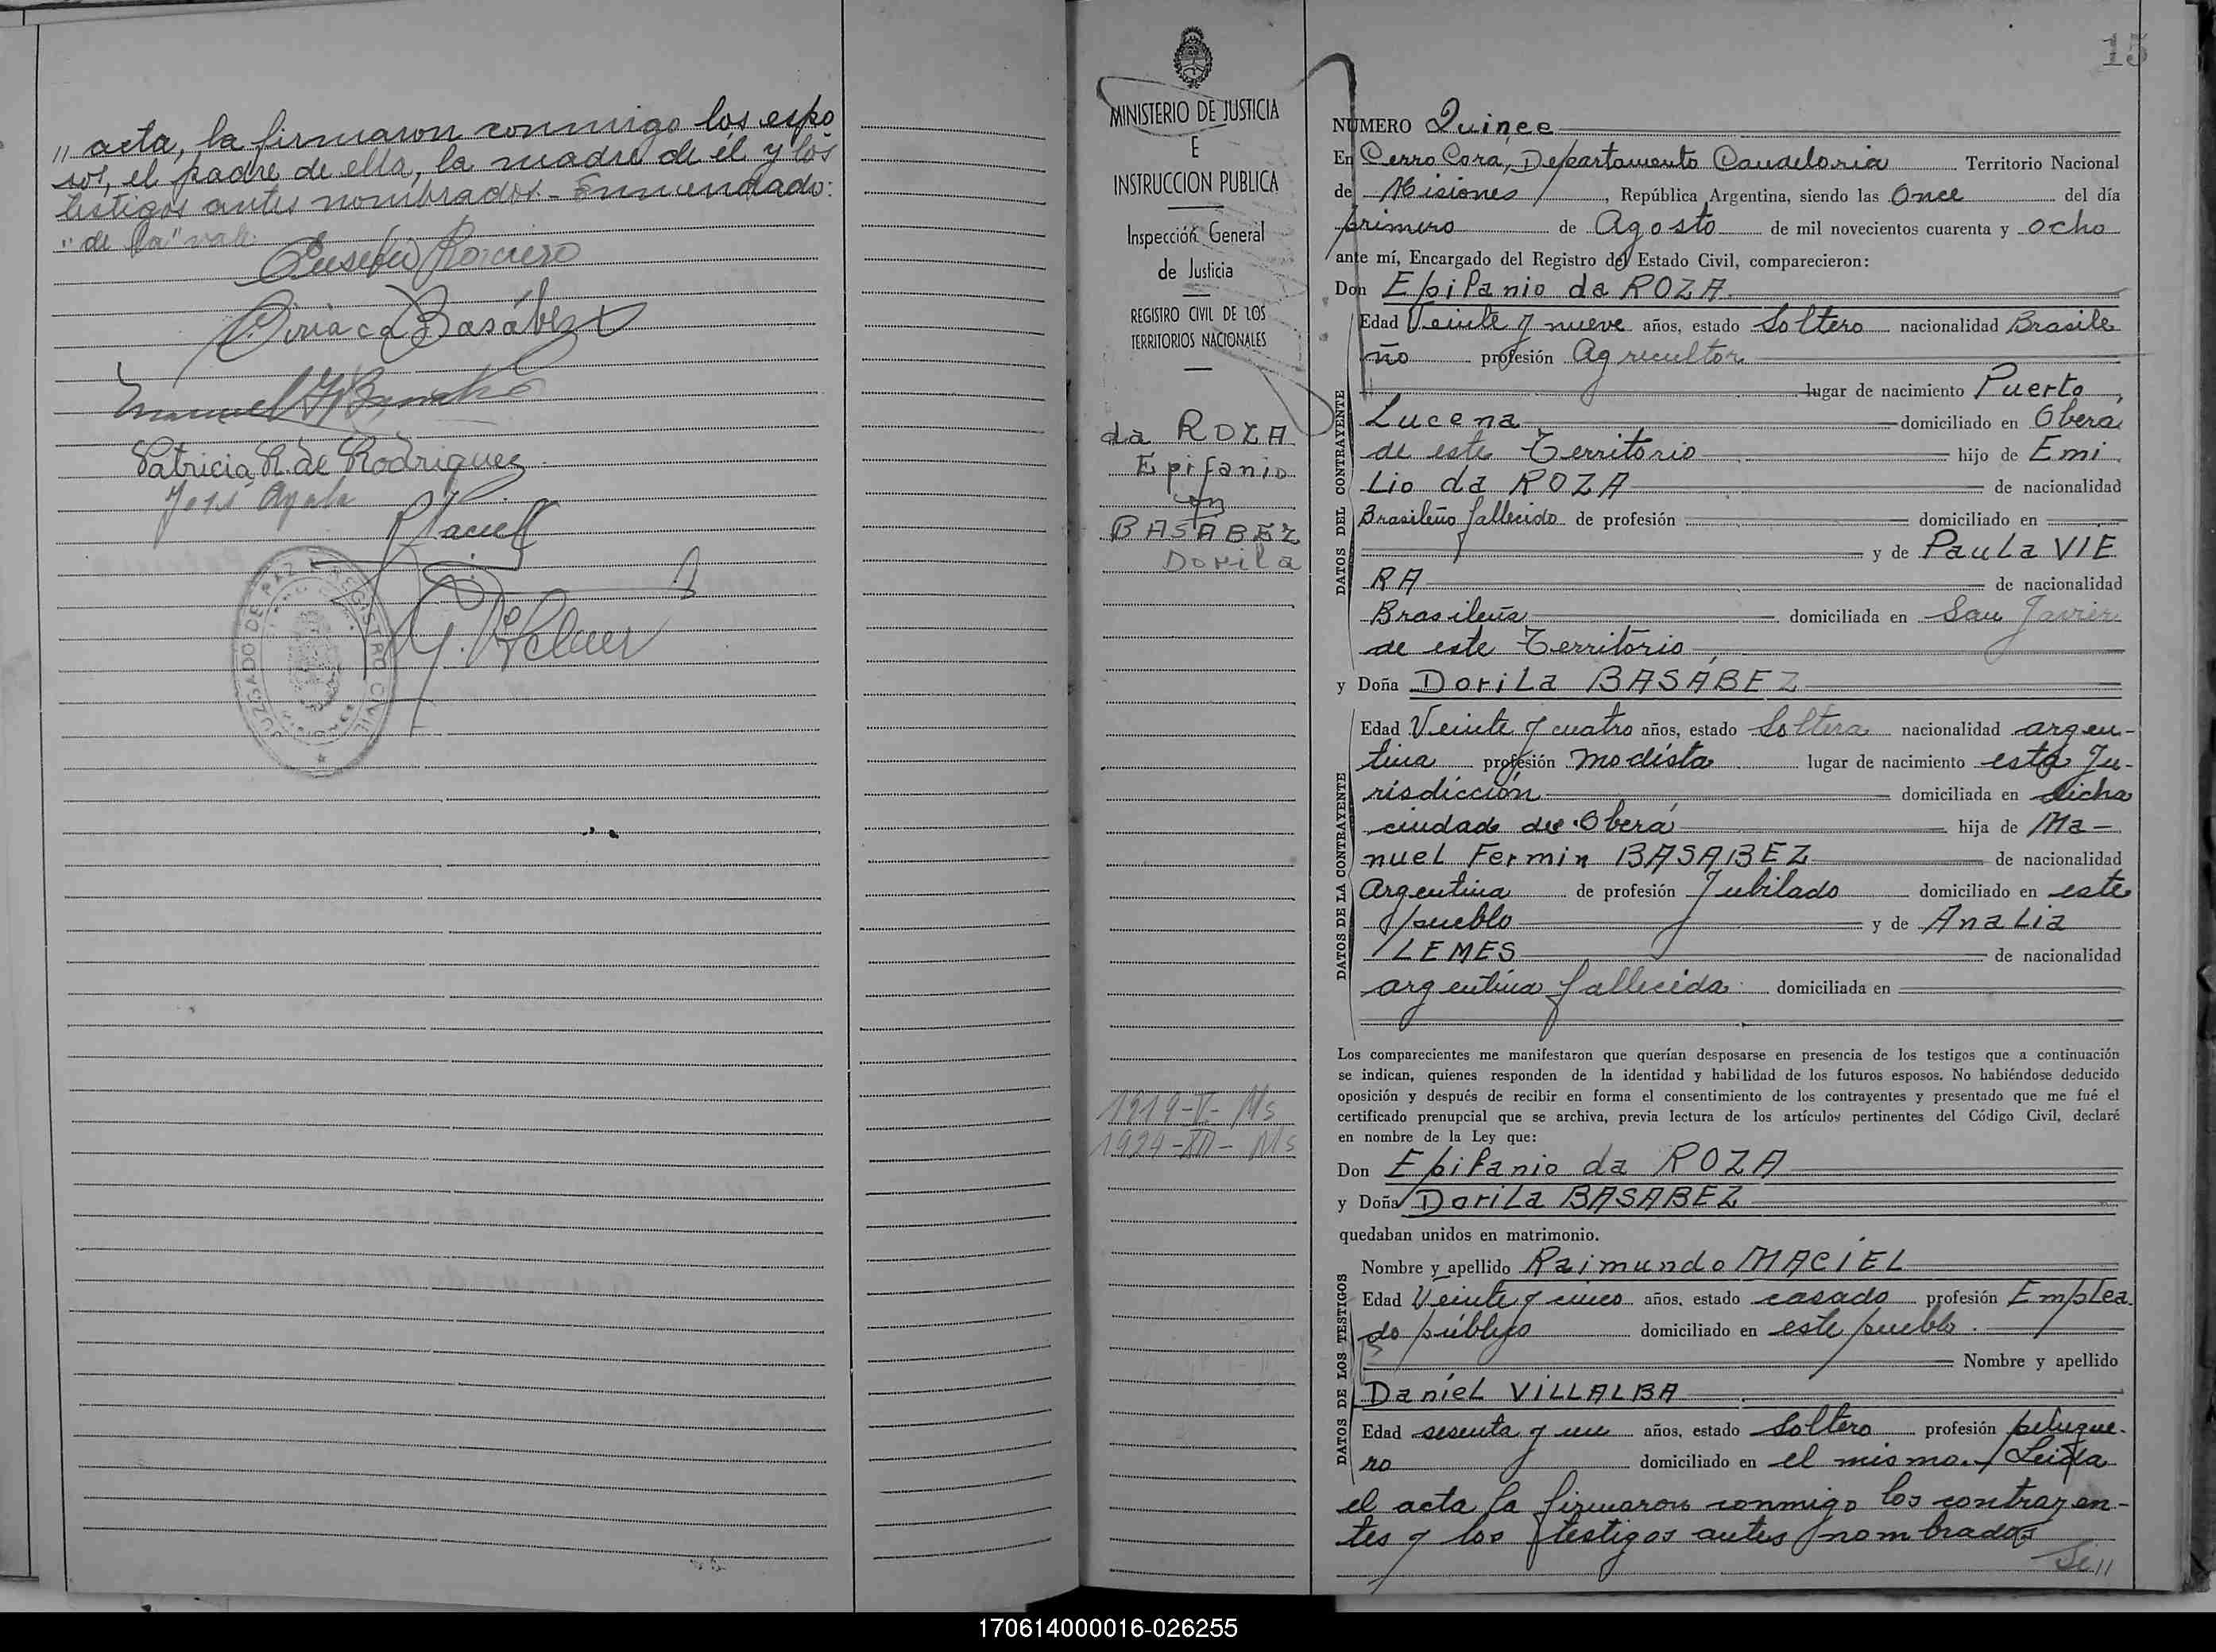 " acta, la firmaron conmigo los espo
sos, el padre de ella, la madre de él y los
testigos antes nombrados - Enmendado:
"de la" vale.
Eusebio Romero
Ciriaca Basábez
Manuel
Patricia R. de Rodriguez
José Ayala
R Maciel
JUZGADO DE PAZ Y REGISTRO CIVIL
MINISTERIO DE JUSTICIA
E
INSTRUCCION PUBLICA
Inspección General
de Justicia
REGISTRO CIVIL DE LOS
TERRITORIOS NACIONALES
da ROZA
Epifanio
con
BASÁBEZ
Dorila
1919-V- Ms
1924-XII- Ms
15
NÚMERO Quince
En Cerro Corá, Departamento Candelaria Territorio Nacional
de Misiones, República Argentina, siendo las Once del día
primero de Agosto de mil novecientos cuarenta y ocho
ante mí, Encargado del Registro del Estado Civil, comparecieron:
Don Epifanio da ROZA
DATOS DEL CONTRAYENTE
Edad Veinte y nueve años, estado Soltero nacionalidad Brasile
ño profesión Agricultor
lugar de nacimiento Puerto
Lucena domiciliado en Oberá
de este Territorio hijo de Emi
Lio da ROZA de nacionalidad
Brasileño fallecido de profesión domiciliado en
y de Paula VIE
RA de nacionalidad
Brasileña domiciliada en San Javier
de este Territorio
y Doña Dorila BASÁBEZ
DATOS DE LA CONTRAYENTE
Edad Veinte y cuatro años, estado Soltera nacionalidad argen-
tina profesión modista lugar de nacimiento esta Ju-
risdicción domiciliada en dicha
ciudad de Oberá hija de Ma-
nuel Fermin BASABEZ de nacionalidad
Argentina de profesión Jubilado domiciliado en este
pueblo y de Analia
LEMES de nacionalidad
argentina fallecida domiciliada en
Los comparecientes me manifestaron que querían desposarse en presencia de los testigos que a continuación
se indican, quienes responden de la identidad y habilidad de los futuros esposos. No habiéndose deducido
oposición y después de recibir en forma el consentimiento de los contrayentes y presentado que me fué el
certificado prenupcial que se archiva, previa lectura de los artículos pertinentes del Código Civil, declaré
en nombre de la Ley que:
Don Epifanio da ROZA
y Doña Dorila BASABEZ
quedaban unidos en matrimonio.
DATOS DE LOS TESTIGOS
Nombre y apellido Raimundo MACIEL
Edad Veinte y cinco años, estado casado profesión Emplea
do público domiciliado en este pueblo.
Nombre y apellido
Daniel VILLALBA
Edad sesenta y un años, estado Soltero profesión peluque-
ro domiciliado en el mismo. Leida
el acta la firmaron conmigo los contrayen-
tes y los testigos antes nombrados
170614000016-026255